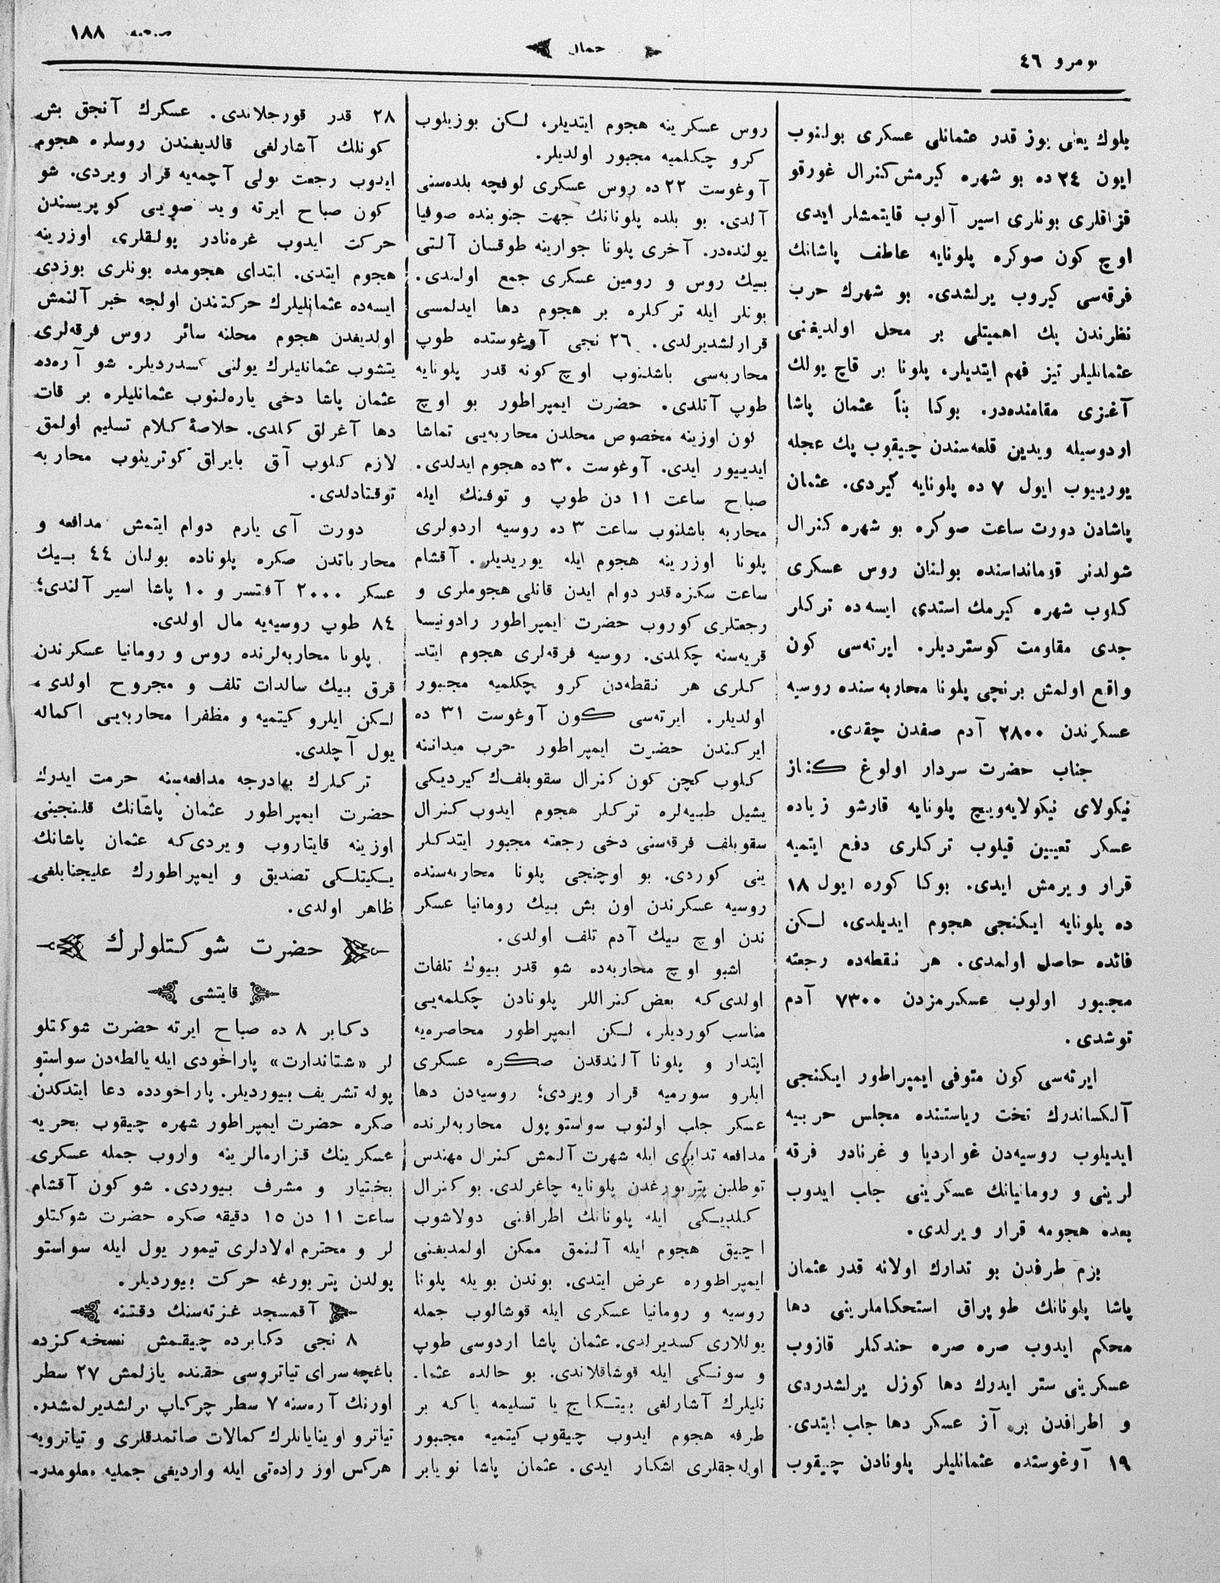 نومرو ٤٦
صحيفه ١٨٨
بلوك يعنى يوز قدر عثمانلى عسكرى بولنوب
ايون ٢٤ ده بو شهره كيرمش كنرال غورقو
قزاقلرى بونلرى اسير آلوب قايتمشلر ايدى
اوچ كون صوكره پلونايه عاطف پاشانك
فرقه‌سى كيروب يرلشدى. بو شهرك حرب
نظرندن پك اهميتلى بر محل اولديغنى
عثمانليلر تيز فهم ايتديلر، پلونا بر قاچ يولك
آغزى مقامنده‌در. بوكا بناً عثمان پاشا
اردوسيله ويدين قلعه‌سندن چيقوب پك عجله
يورييوب ايول ٧ ده پلونايه گيردى. عثمان
پاشادن دورت ساعت صوكره بو شهره كنرال
شولدنر قوماندا‌سنده بولنان روس عسكرى
كلوب شهره كيرمك استدى ايسه‌ده تركلر
جدى مقاومت كوسترديلر. ايرته‌سى كون
واقع اولمش برنچى پلونا محاربه‌سنده روسيه
عسكرندن ٢٨٠٠ آدم صفدن چقدى.
جناب حضرت سردار اولوغ كناز
نيكولاى نيكولايه‌ويچ پلونايه قارشو زياده
عسكر تعيين قيلوب تركلرى دفع ايتميه
قرار ويرمش ايدى. بوكا كوره ايول ١٨
ده پلونايه ايكنجى هجوم ايديلدى، لكن
فائده حاصل اولمدى. هر نقطه‌ده رجعته
مجبور اولوب عسكرمزدن ٧٣٠٠ آدم
توشدى.
ايرته‌سى كون متوفى ايمپراطور ايكنجى
آلكساندرك تخت رياستنده مجلس حربيه
ايديلوب روسيه‌دن غوارديا و غرنادر فرقه
لرينى و رومانيانك عسكرينى جلب ايدوب
بعده هجومه قرار ويرلدى.
بزم طرفدن بو تدارك اولانه قدر عثمان
پاشا پلونانك طوپراق استحكاملرينى دها
محكم ايدوب صره صره حندكلر قازوب
عسكرينى ستر ايدرك دها كوزل يرلشدردى
و اطرافدن بر آز عسكر دها جلب ايتدى.
١٩ آوغوستده عثمانليلر پلونادن چيقوب
روس عسكرينه هجوم ايتديلر، لكن بوزيلوب
كرو چكلميه مجبور اولديلر.
آوغوست ٢٢ ده روس عسكرى لوفچه بلده‌سنى
آلدى. بو بلده پلونانك جهت جنوبنده صوفيا
يولنده‌در. آخرى پلونا جوارينه طوقسان آلتى
بيك روس و رومين عسكرى جمع اولندى.
بونلر ايله تركلره بر هجوم دها ايدلمسى
قرارلشديرلدى. ٢٦ نجى آوغوستده طوپ
محاربه‌سى باشلنوب اوچ كونه قدر پلونايه
طوپ آتلدى. حضرت ايمپراطور بو اوچ
كون اوزينه مخصوص محلدن محاربه‌يى تماشا
ايدييور ايدى. آوغوست ٣٠ ده هجوم ايدلدى.
صباح ساعت ١١ دن طوپ و توفنك ايله
محاربه باشلنوب ساعت ٣ ده روسيه اردولرى
پلونا اوزرينه هجوم ايله يوريديلر. آقشام
ساعت سكزه قدر دوام ايدن قانلى هجوملرى و
رجعتلرى كوروب حضرت ايمپراطور رادونيسا
قريه‌سنه چكلدى. روسيه فرقه‌لرى هجوم ايتد
كلرى هر نقطه‌دن كرو چكلميه مجبور
اولديلر. ايرته‌سى كون آوغوست ٣١ ده
ايركندن حضرت ايمپراطور حرب ميداننه
كلوب كچن كون كنرال سقوبلفك كيرديكى
يشيل طبيه‌لره تركلر هجوم ايدوب كنرال
سقوبلف فرقه‌سنى دخى رجعته مجبور ايتدكلر
ينى كوردى. بو اوچنجى پلونا محاربه‌سنده
روسيه عسكرندن اون بش بيك رومانيا عسكر
ندن اوچ بيك آدم تلف اولدى.
اشبو اوچ محاربه‌ده شو قدر بيوك تلفات
اولدى‌كه بعض كنراللر پلونادن چكلمه‌يى
مناسب كورديلر، لكن ايمپراطور محاصره‌يه
ابتدار و پلونا آلندقدن صكره عسكرى
ايلرو سورميه قرار ويردى؛ روسيه‌دن دها
عسكر جلب اولنوب سواستوپول محاربه‌لرنده
مدافعه تدابيرى ايله شهرت آلمش كنرال مهندس
توطلبن پتربورغدن پلونايه چاغرلدى. بو كنرال
كلديكى ايله پلونانك اطرافنى دولاشوب
آچيق هجوم ايله آلنمق ممكن اولمديغنى
ايمپراطوره عرض ايتدى. بوندن بويله پلونا
روسيه و رومانيا عسكرى ايله قوشالوب جمله
يوللارى كسديرلدى. عثمان پاشا اردوسى طوپ
و سونكى ايله قوشاقلاندى. بو حالده عثما.
نليلرك آشارلغى بيتكاچ يا تسليمه ياكه بر
طرفه هجوم ايدوب چيقوب كيتميه مجبور
اوله‌جقلرى اشكار ايدى. عثمان پاشا نويابر
٢٨ قدر قورجلاندى. عسكرك آنجق بش
كونلك آشارلغى قالديغندن روسلره هجوم
ايدوب رجعت يولى آچمه‌يه قرار ويردى. شو
كون صباح ايرته ويد صويى كوپريسندن
حركت ايدوب غره‌نادر پولقلرى اوزرينه
هجوم ايتدى. ابتداى هجومده بونلرى بوزدى
ايسه‌ده عثمانليلرك حركتندن اولجه خبر آلنمش
اولديغدن هجوم محلنه سائر روس فرقه‌لرى
يتشوب عثمانليلرك يولنى كسدرديلر. شو آره‌ده
عثمان پاشا دخى ياره‌لنوب عثمانليلره بر قات
دها آغرلق كلدى. خلاصۀ كلام تسليم اولمق
لازم كلوب آق بايراق كوترينوب محاربه
توقتادلدى.
دورت آى يارم دوام ايتمش مدافعه و
محارباتدن صكره پلوناده بولنان ٤٤ بيك
عسكر ٢٠٠٠ آفتسر و ١٠ پاشا اسير آلندى؛
٨٤ طوپ روسيه‌يه مال اولدى.
پلونا محاربه‌لرنده روس و رومانيا عسكرندن
قرق بيك سالدات تلف و مجروح اولدى،
لكن ايلرو كيتميه و مظفرا محاربه‌يى اكماله
يول آچلدى.
تركلرك بهادرجه مدافعه‌سنه حرمت ايدرك
حضرت ايمپراطور عثمان پاشانك قلنجينى
اوزينه قايتاروب ويردى‌كه عثمان پاشانك
يكيتلكى تصديق و ايمپراطورك عليجنابلغى
ظاهر اولدى.
حضرت شوكتلولرك
قايتشى
دكابر ٨ ده صباح ايرته حضرت شوكتلو
لر «شتاندارت» پاراخودى ايله يالطه‌دن سواستو
پوله تشريف بيورديلر. پاراخودده دعا ايتدكدن
صكره حضرت ايمپراطور شهره چيقوب بحريه
عسكرينك قزارمالرينه واروب جمله عسكرى
بختيار و مشرف بيوردى. شو كون آقشام
ساعت ١١ دن ١٥ دقيقه صكره حضرت شوكتلو
لر و محترم اولادلرى تيمور يول ايله سواستو
پولدن پتربورغه حركت بيورديلر.
آقمسجد غزته‌سنك دقتنه
٨ نجى دكابرده چيقمش نسخه‌كزده
باغچه‌سراى تياتروسى حقنده يازلمش ٢٧ سطر
اورنك آره‌سنه ٧ سطر چركاپ يرلشديرلمشدر.
تياترو اوينايانلرك كمالات صاتمدقلرى و تياترويه
هركس اوز راده‌تى ايله وارديغى جمليه معلومدر.